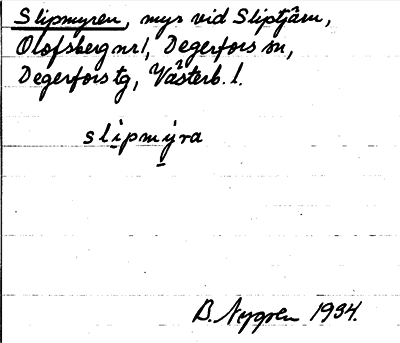 Slipmyren, myr vid Sliptjärn,
Olofsberg nr 1, Degerfors sn,
Degerfors tg, Västerb. l.
slipmyra
B. Nygren 1934.